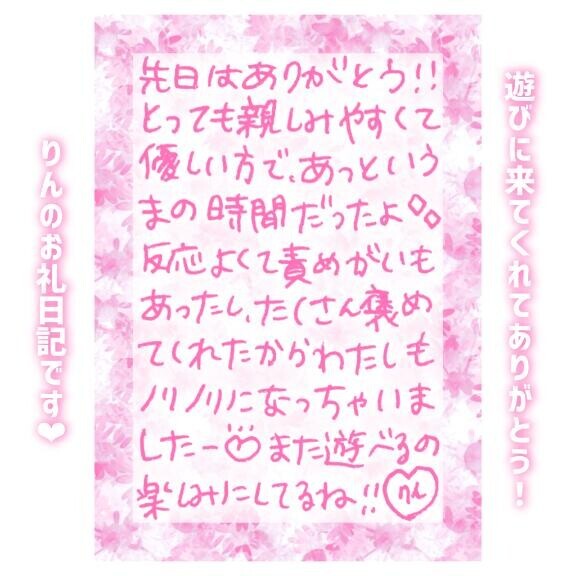 遊びに来てくれてありがとう！
先日はありがとう!!
とっても親しみやすくて
優しい方で、あっという
まの時間だったよ◇◇
反応よくて責めがいも
あったし、たくさん褒め
てくれたからわたしも
ノリノリになっちゃいま
したー♡また遊べるの
楽しみにしてるね!!りん
りんのお礼日記です❤